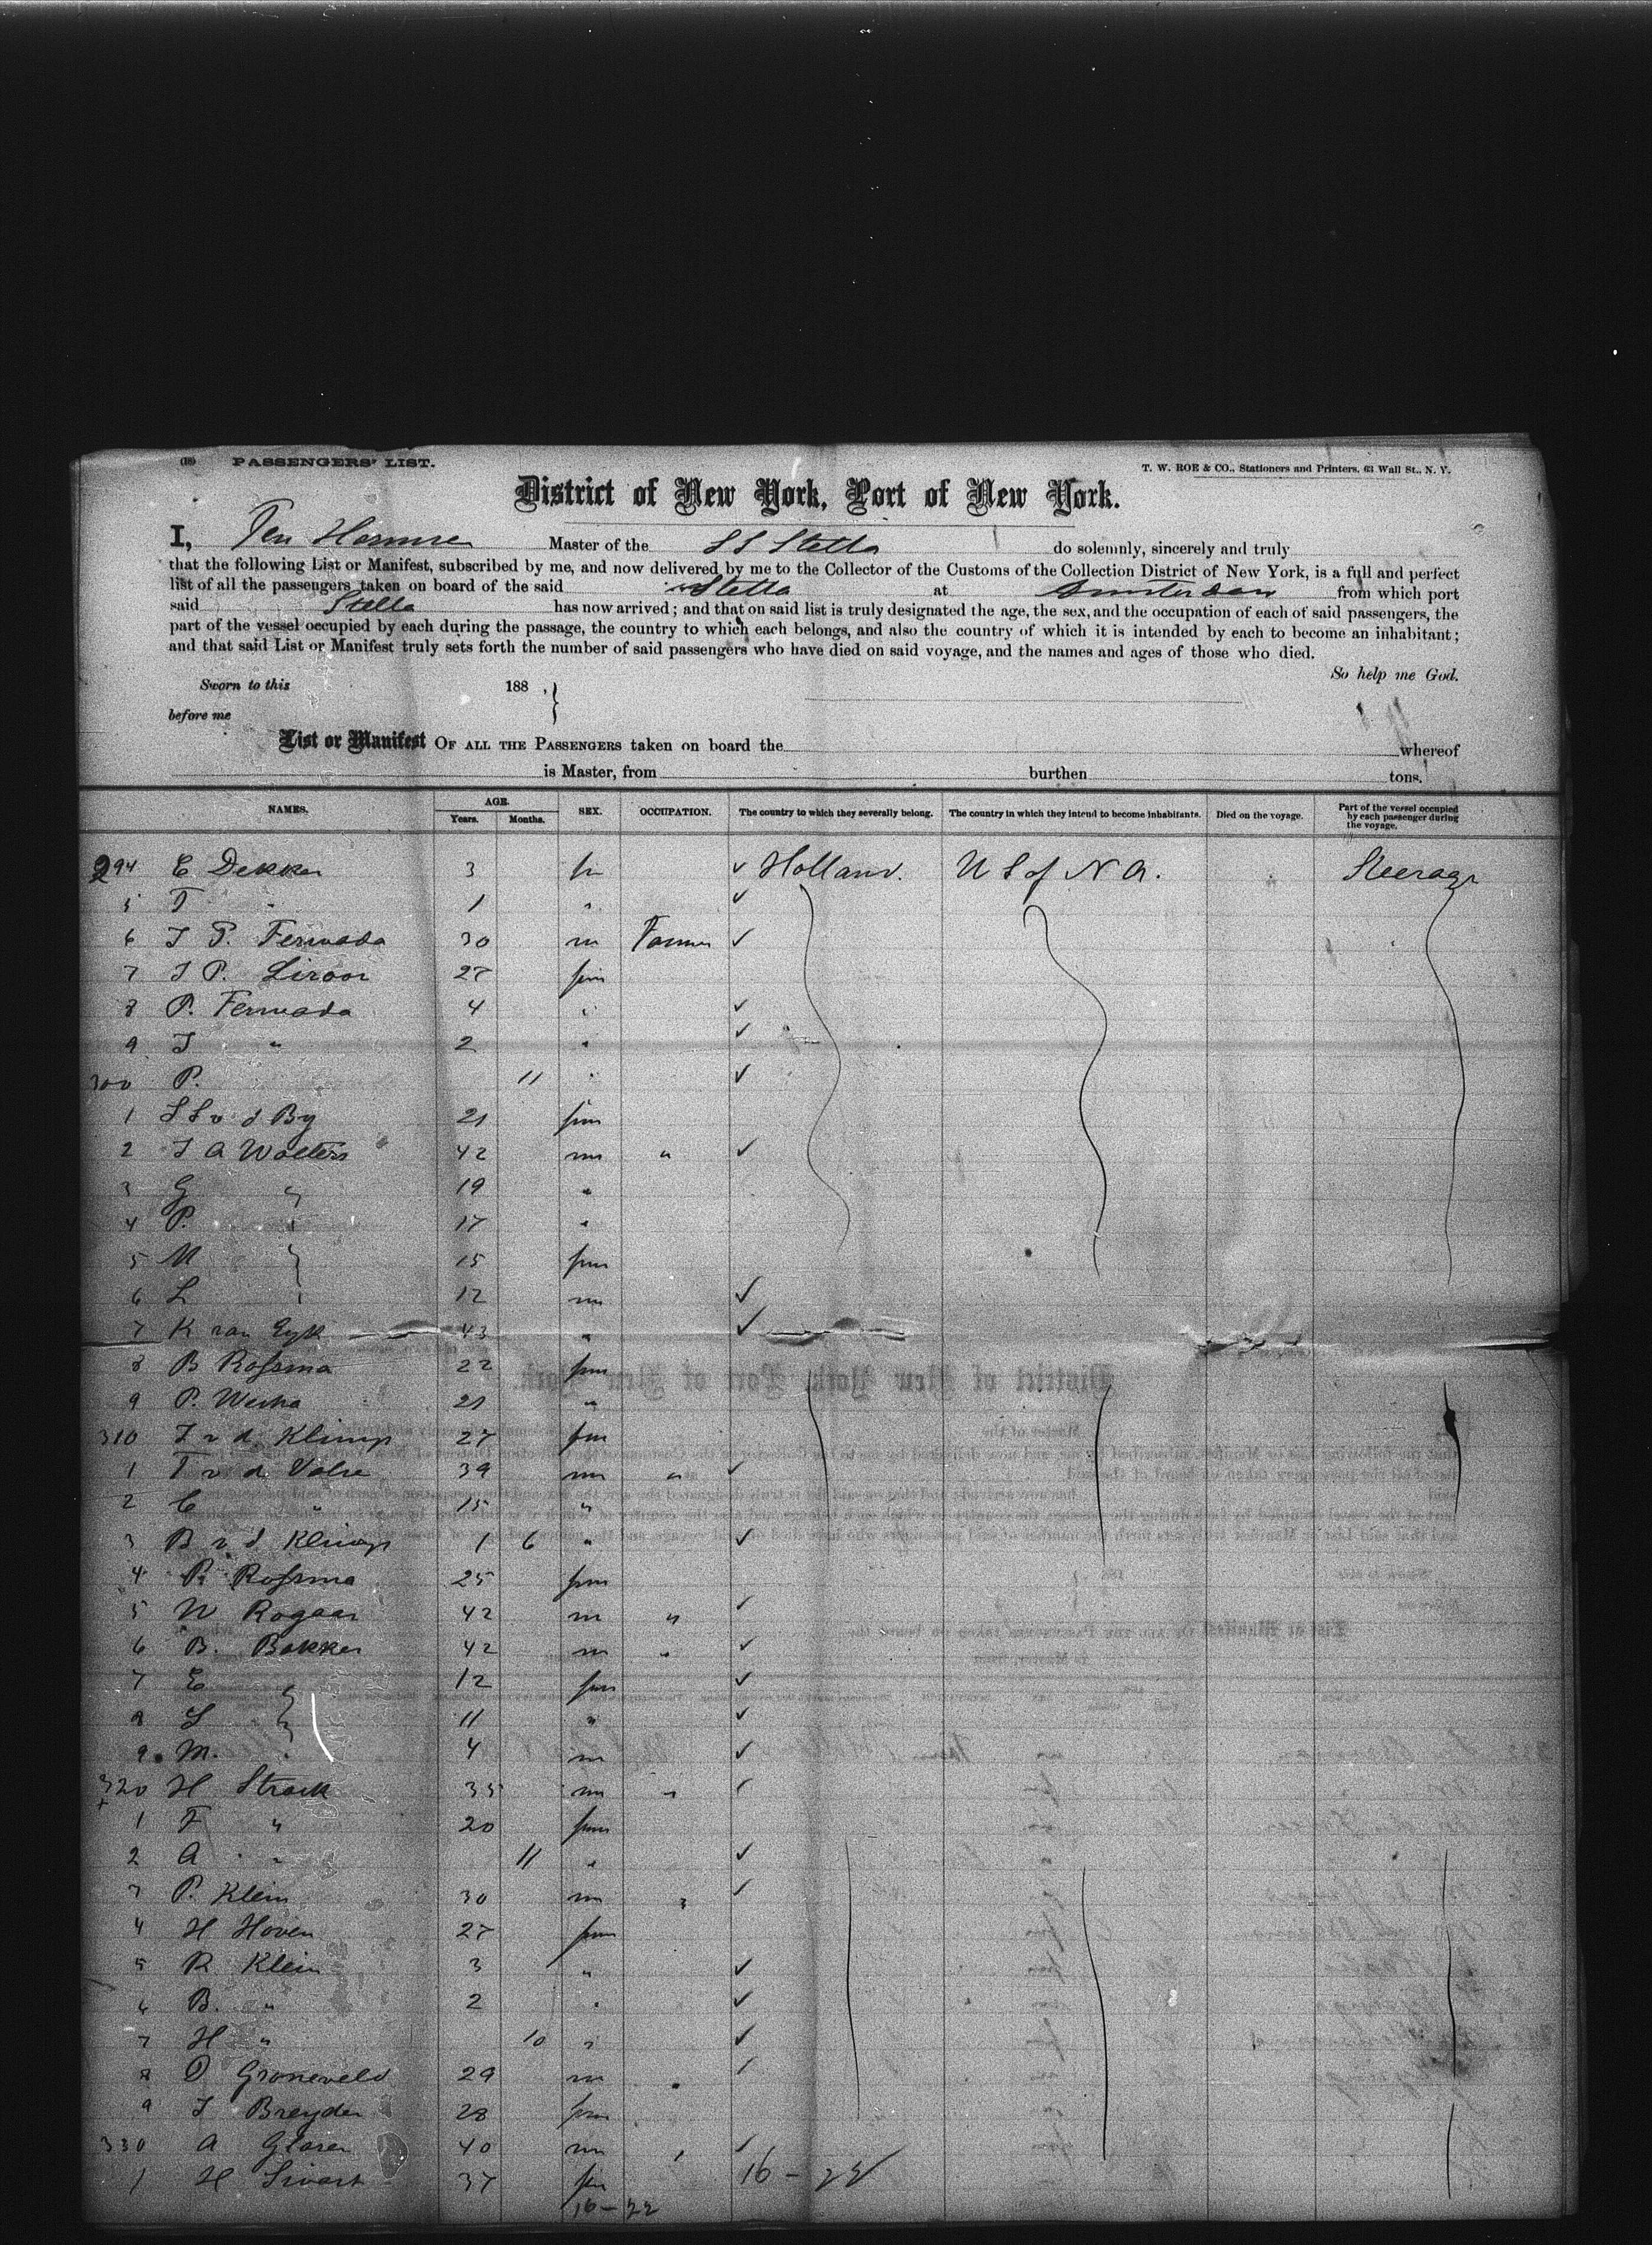 (18) PASSENGERS' LIST. T. W. ROE & CO., Stationers and Printers, 63 Wall St., N. Y.
District of New York, Port of New York.
I, Ten Master of the SS Stella do solemnly, sincerely and truly
that the following List or Manifest, subscribed by me, and now delivered by me to the Collector of the Customs of the Collection District of New York, is a full and perfect
list of all the passengers taken on board of the said Stella at Amsterdam from which port
said Stella has now arrived; and that on said list is truly designated the age, the sex, and the occupation of each of said passengers, the
part of the vessel occupied by each during the passage, the country to which each belongs, and also the country of which it is intended by each to become an inhabitant;
and that said List or Manifest truly sets forth the number of said passengers who have died on said voyage, and the names and ages of those who died.
So help me God.
Sworn to this 188 , }
before me
List or Manifest OF ALL THE PASSENGERS taken on board the whereof
is Master, from burthen tons.
NAMES. AGE. Years. Months. SEX. OCCUPATION. The country to which they severally belong. The country in which they intend to become inhabitants. Died on the voyage. Part of the vessel occupied by each passenger during the voyage.
294 E Dekker 3 fm ✓ Holland. U S of N A. Steerage
5 T " 1 " ✓
6 J P. Ferwada 30 m Farmer ✓
7 J P. 27 fm
8 P. Ferwada 4 " ✓
9 J " 2 " ✓
300 P. 11 " ✓
1 S S v d By 21 fm
2 J A Wolters 42 m " ✓
3 G " 19 "
4 P. " 17 "
5 M " 15 fm
6 L " 12 m ✓
7 K van Eyk 43 " ✓
8 B Rossma 22 fm
9 P. 21 "
310 J v d Klimp 27 fm
1 T v d Valse 39 m " ✓
2 C " 15 "
3 B v d Klimp 1 6 " ✓
4 R Rossma 25 fm
5 W Rogaar 42 m " ✓
6 B. Bakker 42 m " ✓
7 E " 12 fm ✓
8 S " 11 " ✓
9 M. " 4 m ✓
320 H Strack 35 m " ✓
1 F " 20 fm
2 A " 11 " ✓
3 P. Klein 30 m " ✓
4 H Hoven 27 fm
5 R Klein 3 " ✓
6 B. " 2 " ✓
7 H " 10 " ✓
8 D Groneveld 29 m " ✓
9 J Breyder 28 fm
330 A Glasen 40 m " ✓
1 H 37 fm 16 - 22
16 - 22